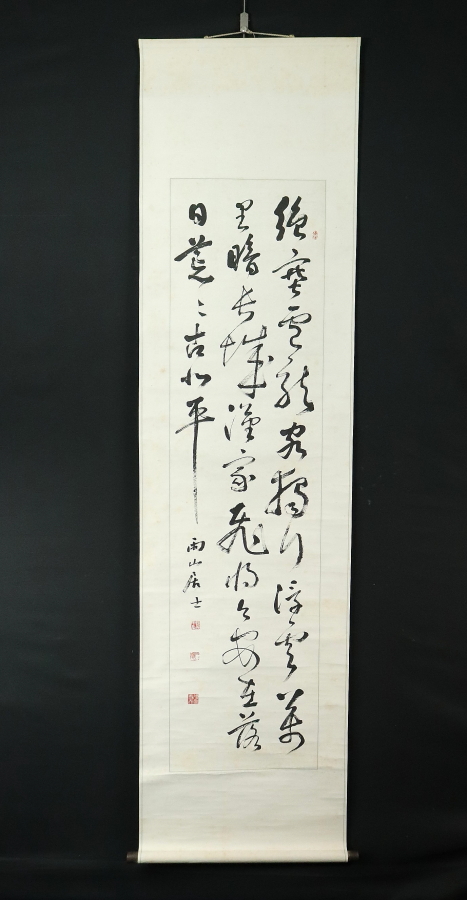 絶塞客獨行浮雲萬
里暗長城漢家飛将今安在落
日荒々古北平
雨山居士